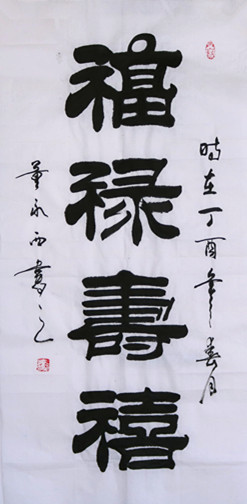 時在丁酉年春月
福禄壽禧
董永西書之